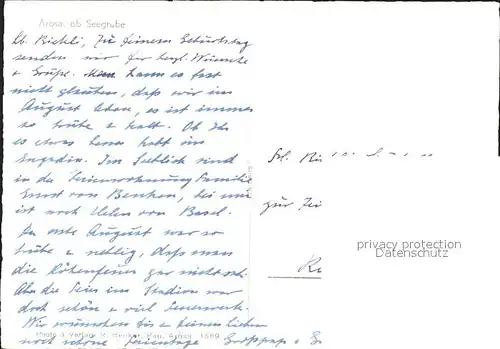 Arosa. ob Seegrube
Lb. Rickli, Zu Deinem Geburtstag
senden wir Dir herzl. Wünsche
& Grüsse. Man kann es fast
nicht glauben, dass wir im
August leben, es ist immer
so trübe & kalt. Ob Ihr
es etwas besser habt im
Engadin. Im Seeblick sind
in der Ferienwohnung Familie
Ernst von Benken, bei mir
ist noch Helen von Basel.
Am erste August war so
trübe & neblig, dass man
die Höhenfeuer gar nicht sah.
Aber die Feier im Stadion war
doch schön & viel Feuerwerk.
Wir wünschen Dir & Deinen Lieben
Photo & Verlag: R. Henkel, Pap. Arosa 1589
noch schöne Ferientage Grosspapa &
Frl.
zur
privacy protection
Datenschutz